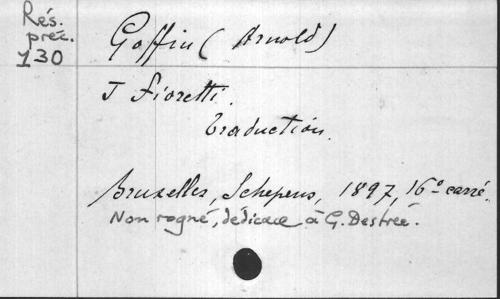 Rés.
préc.
130
Goffin (Arnold)
I Fioretti.
Traduction.
Bruxelles, Schepens, 1897, 16° carré.
Non rogné, dédicace à G. Destrée.